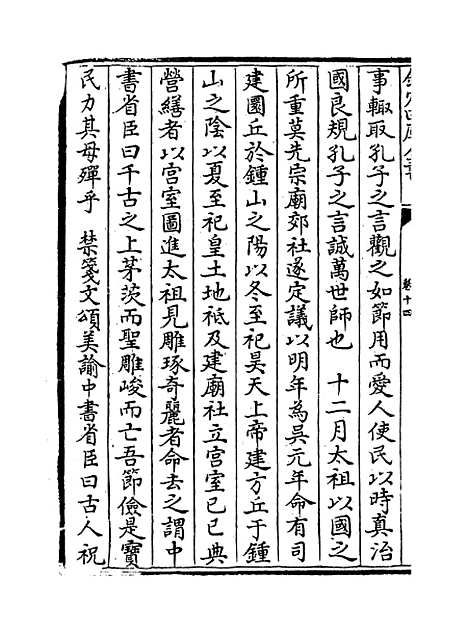 事輙取孔子之言觀之如節用而愛人使民以時真治
國良規孔子之言誠萬世師也　十二月太祖以國之
所重莫先宗廟郊社遂定議以明年為吳元年命有司
建圜丘於鍾山之陽以冬至祀昊天上帝建方丘于鍾
山之陰以夏至祀皇土地祇及建廟社立宫室己巳典
營繕者以宫室圖進太祖見雕琢奇麗者命去之謂中
書省臣曰千古之上茅茨而聖雕峻而亡吾節儉是寳
民力其毋殫乎　禁箋文頌美諭中書省臣曰古人祝
卷十四